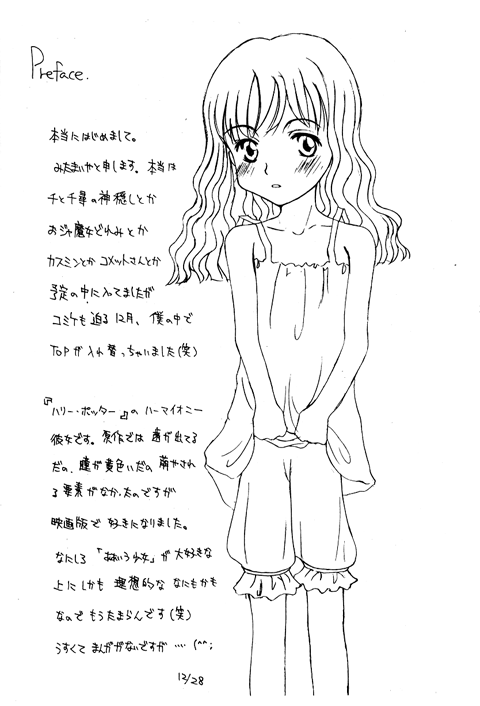 Preface.
本当にはじめまして。
みたまいやと申します。本当は
千と千尋の神隠しとか
おジャ魔女どれみとか
カスミンとか コメットさんとか
予定の中に入ってましたが
コミケも迫る12月、僕の中で
TOPが入れ替っちゃいました(笑)
『ハリー・ポッター』の ハーマイオニー
彼女です。原作では 歯が出てる
だの、瞳が黄色いだの 萌やされ
る要素がなかったのですが
映画版で 好きになりました。
なにしろ 「おおいう少女」が 大好きな
上にしかも 理想的な なにもかも
なので もうたまらんです(笑)
うすくて まんががないですが …. (^^;
12/28